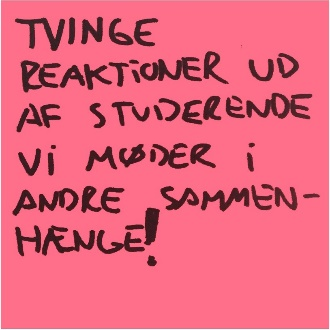 TVINGE
REAKTIONER UD
AF STUDERENDE
VI MØDER I
ANDRE SAMMEN-
HÆNGE!